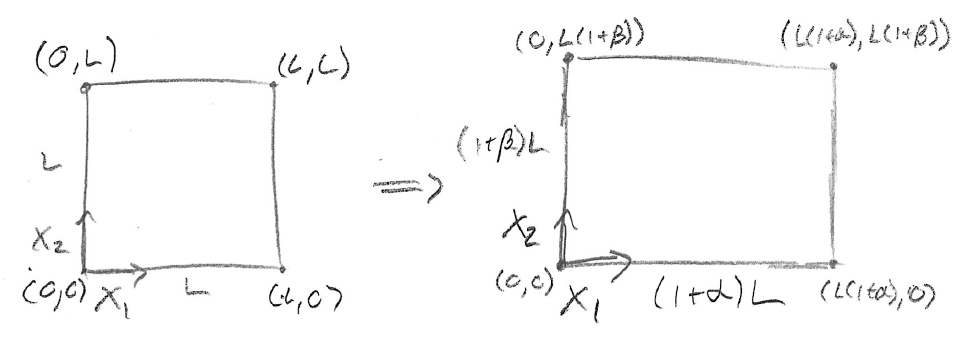 (0,L)
(L,L)
L
X₂
(0,0)
X₁
L
(L,0)
=>
(0,L(1+β))
(L(1+α),L(1+β))
(1+β)L
X₂
(0,0)
X₁
(1+α)L
(L(1+α),0)